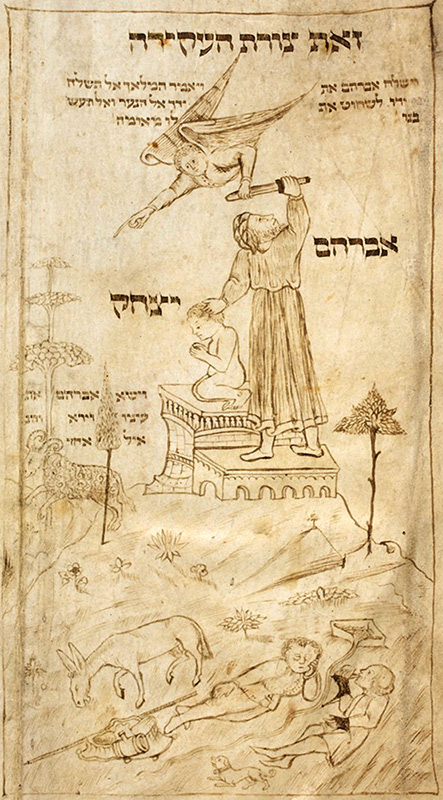 זאת צורת העקידה
וישלח אברהם את
ידו לשחוט את
בנו
ויאמר המלאך אל תשלח
ידך אל הנער ואל תעש
לו מאומה
אברהם
יצחק
וישא אברהם את
עיניו וירא
איל אחר